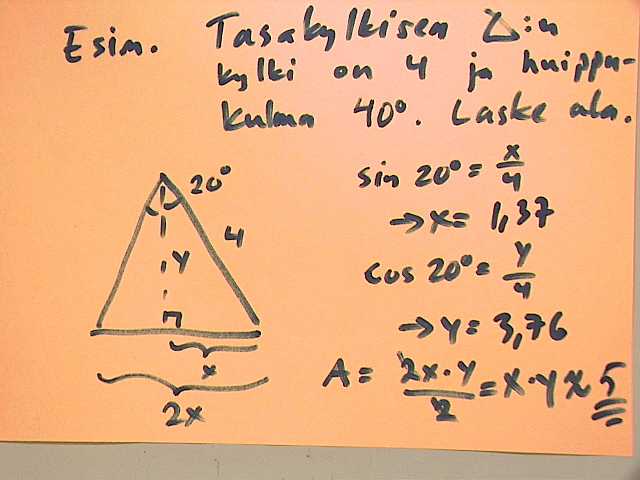 Esim. Tasakylkisen △:n
kylki on 4 ja huippu-
kulma 40°. Laske ala.
20°
4
y
x
2x
sin 20° = x/4
→ x = 1,37
cos 20° = y/4
→ y = 3,76
A = 2x·y/2 = x·y ≈ 5